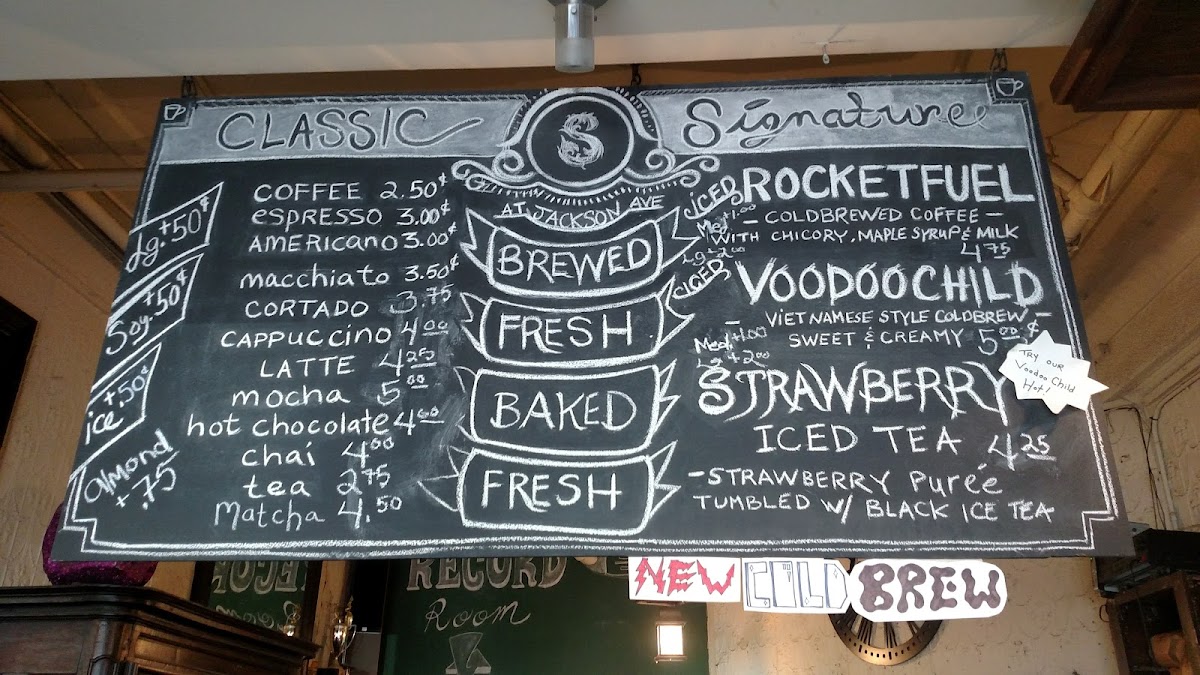 CLASSIC
COFFEE 2.50¢
ESPRESSO 3.00¢
AMERICANO 3.00¢
macchiato 3.50¢
CORTADO 3.75
CAPPUCCINO 4.00
LATTE 4.25
mocha 5.00
hot chocolate 4.00
chai 4.00
tea 2.75
Matcha 4.50
Lg. +.50¢
Soy. +.50¢
ice +.50¢
almond
+.75
S
AT JACKSON AVE
BREWED
FRESH
BAKED
FRESH
Signature
ICED ROCKETFUEL
Med +1.00
Lg +2.00
- COLDBREWED COFFEE -
WITH CHICORY, MAPLE SYRUP & MILK
4.75
ICED VOODOOCHILD
Med. +1.00
Lg +2.00
- VIETNAMESE STYLE COLDBREW -
SWEET & CREAMY 5.00¢
TRY OUR
Voodoo Child
Hot!
STRAWBERRY
ICED TEA 4.25
- STRAWBERRY Purée
TUMBLED W/ BLACK ICE TEA
NEW COLD BREW
RECORD
Room